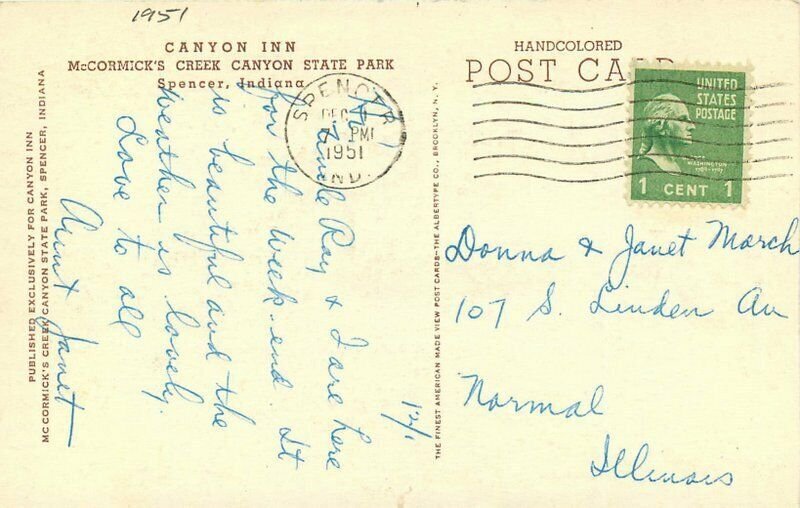 1951
CANYON INN
McCORMICK'S CREEK CANYON STATE PARK
Spencer, Indiana
HANDCOLORED
POST CARD
PUBLISHED EXCLUSIVELY FOR CANYON INN
McCORMICK'S CREEK CANYON STATE PARK, SPENCER, INDIANA
THE FINEST AMERICAN MADE VIEW POST CARDS—THE ALBERTYPE CO., BROOKLYN, N. Y.
SPENCER
DEC
PM
1951
IND.
UNITED
STATES
POSTAGE
WASHINGTON
1789-1797
1 CENT 1
12/1
Uncle Ray & I are here
for the week-end. It
is beautiful and the
weather is lovely.
Love to all
Aunt Janet
Donna & Janet March
107 S. Linden Av
Normal
Illinois